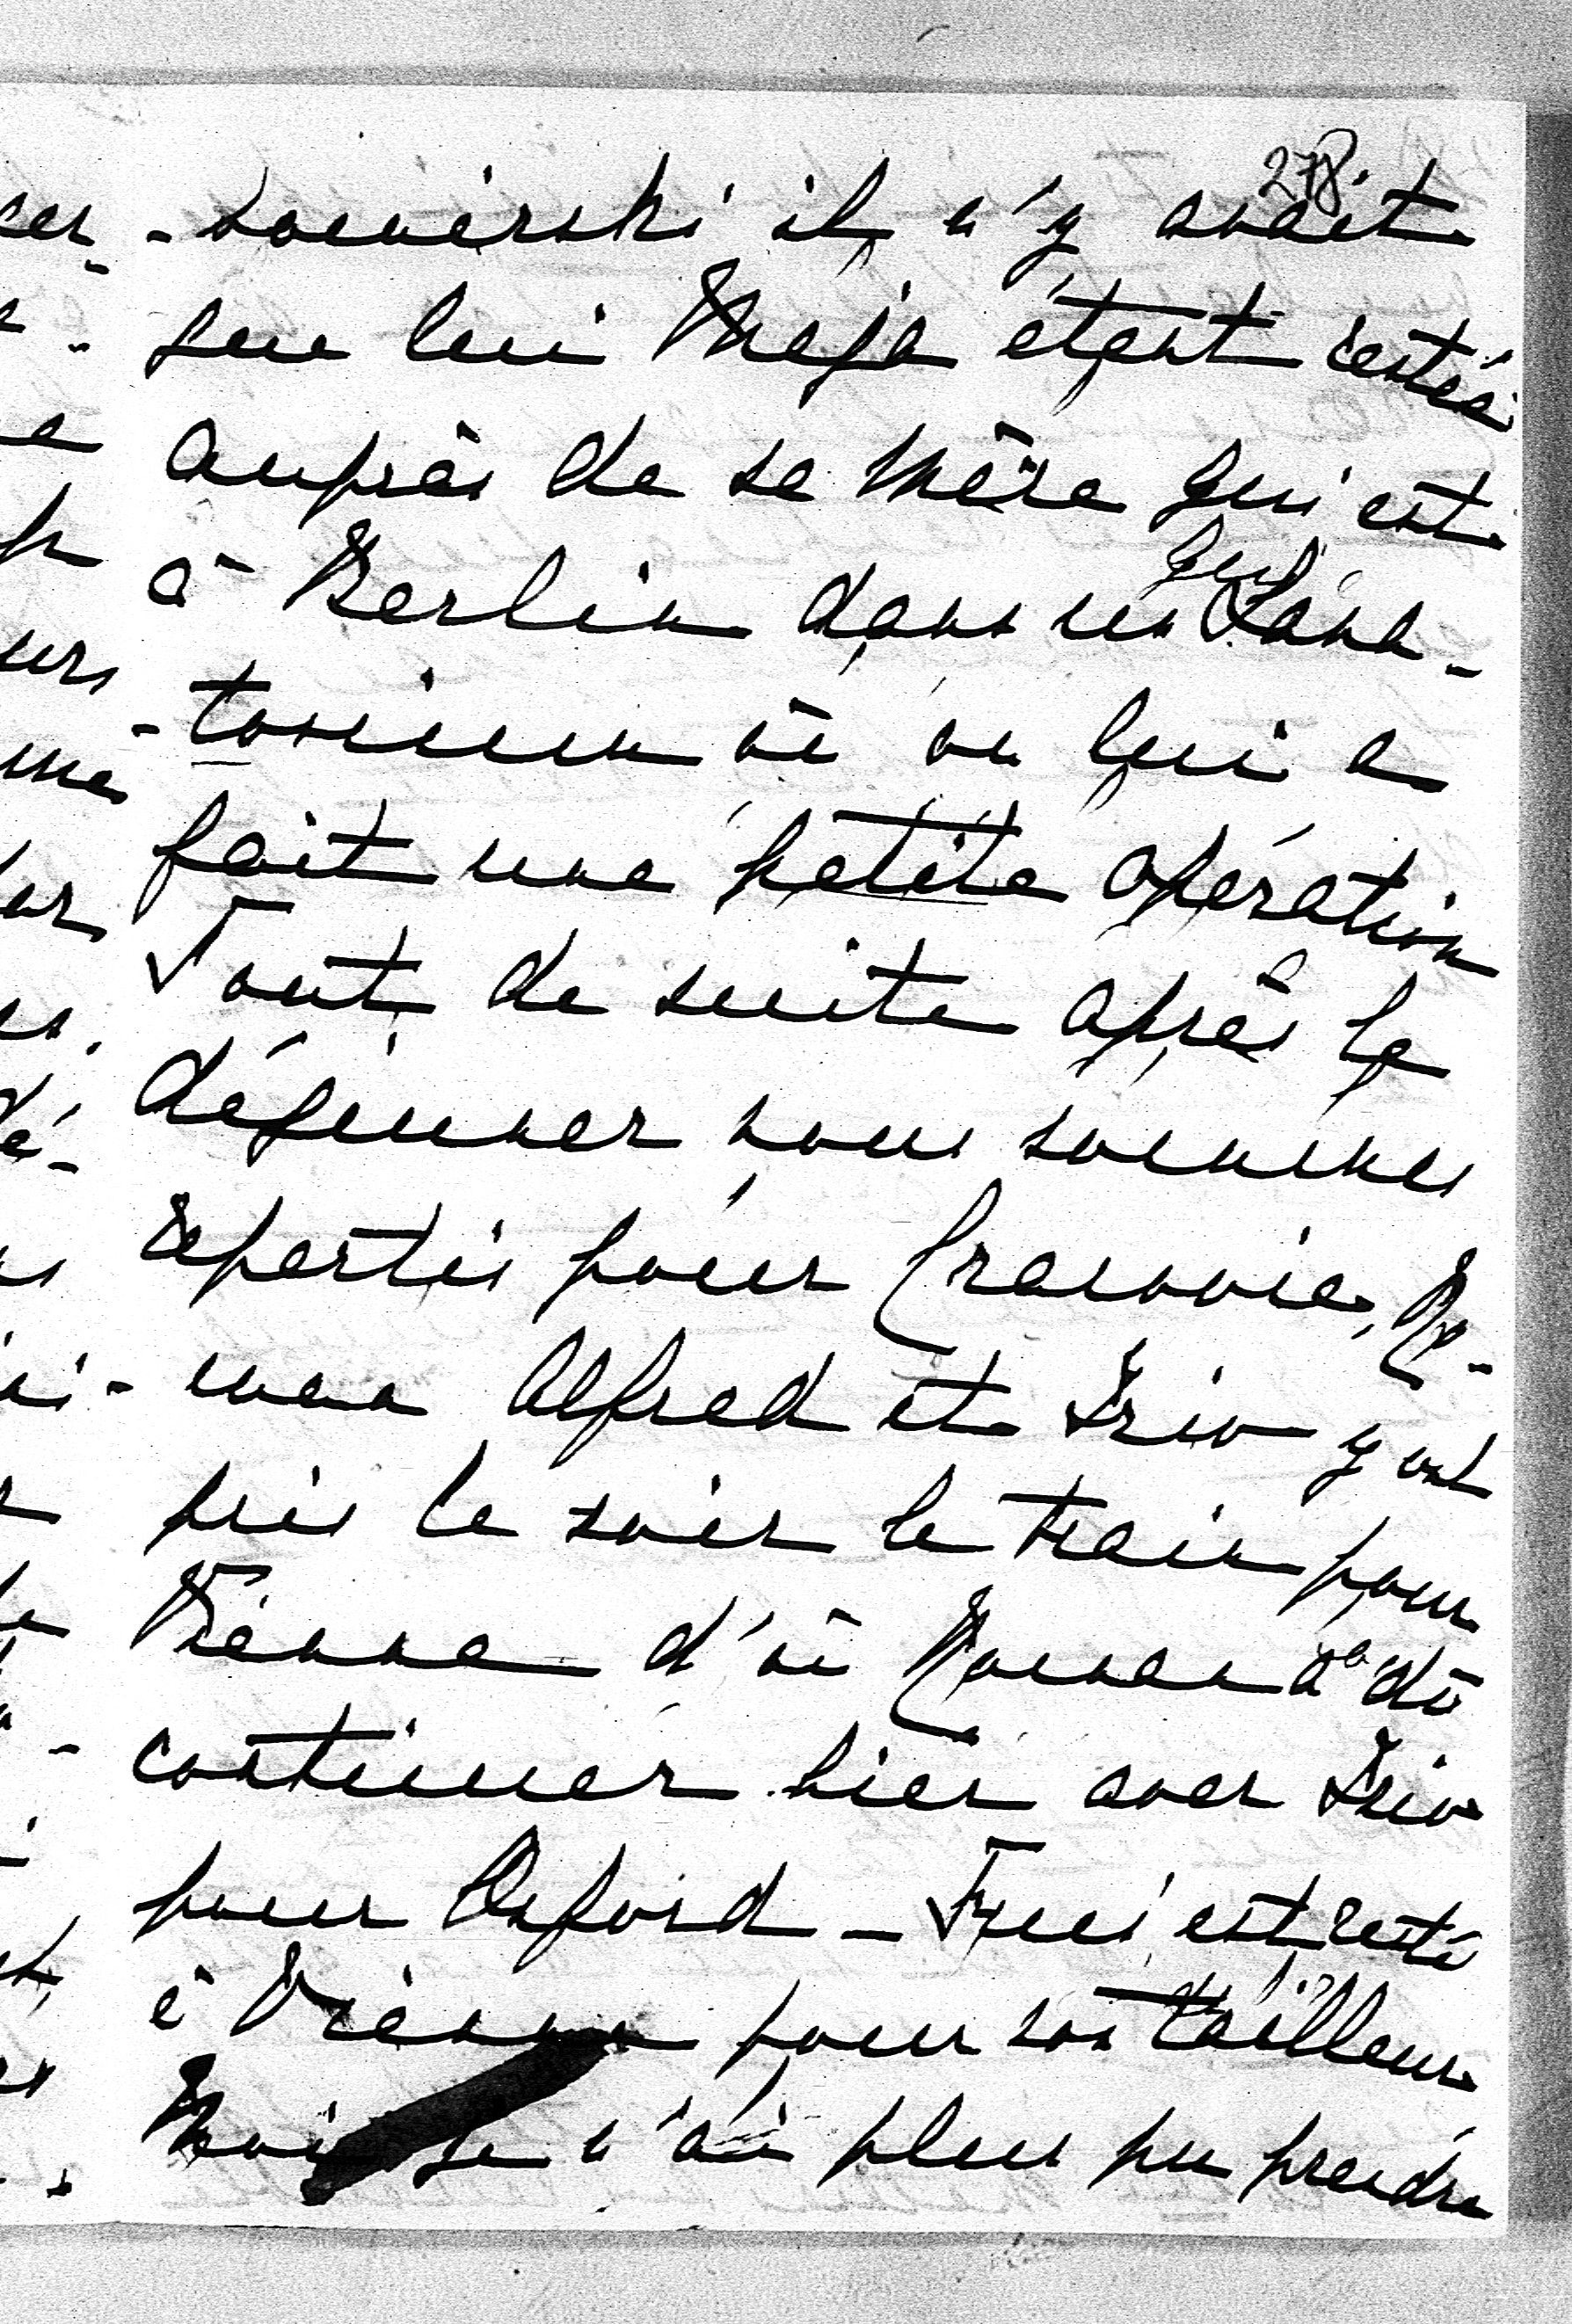 278
-nowierski il n'y avait
que lui Maja étant restée
auprès de sa Mère qui est
à Berlin dans un Sana-
-torium où on lui a
fait une petite opération
Tout de suite après le
déjeuner nous sommes
repartis pour Cracovie, Ro-
-man Alfred et Frio y ont
pris le soir le train pour
Vienne d'où Roman a dû
continuer hier avec Frio
pour Oxford – est resté
à Vienne pour son tailleur
Moi je n'ai plus pu prendre